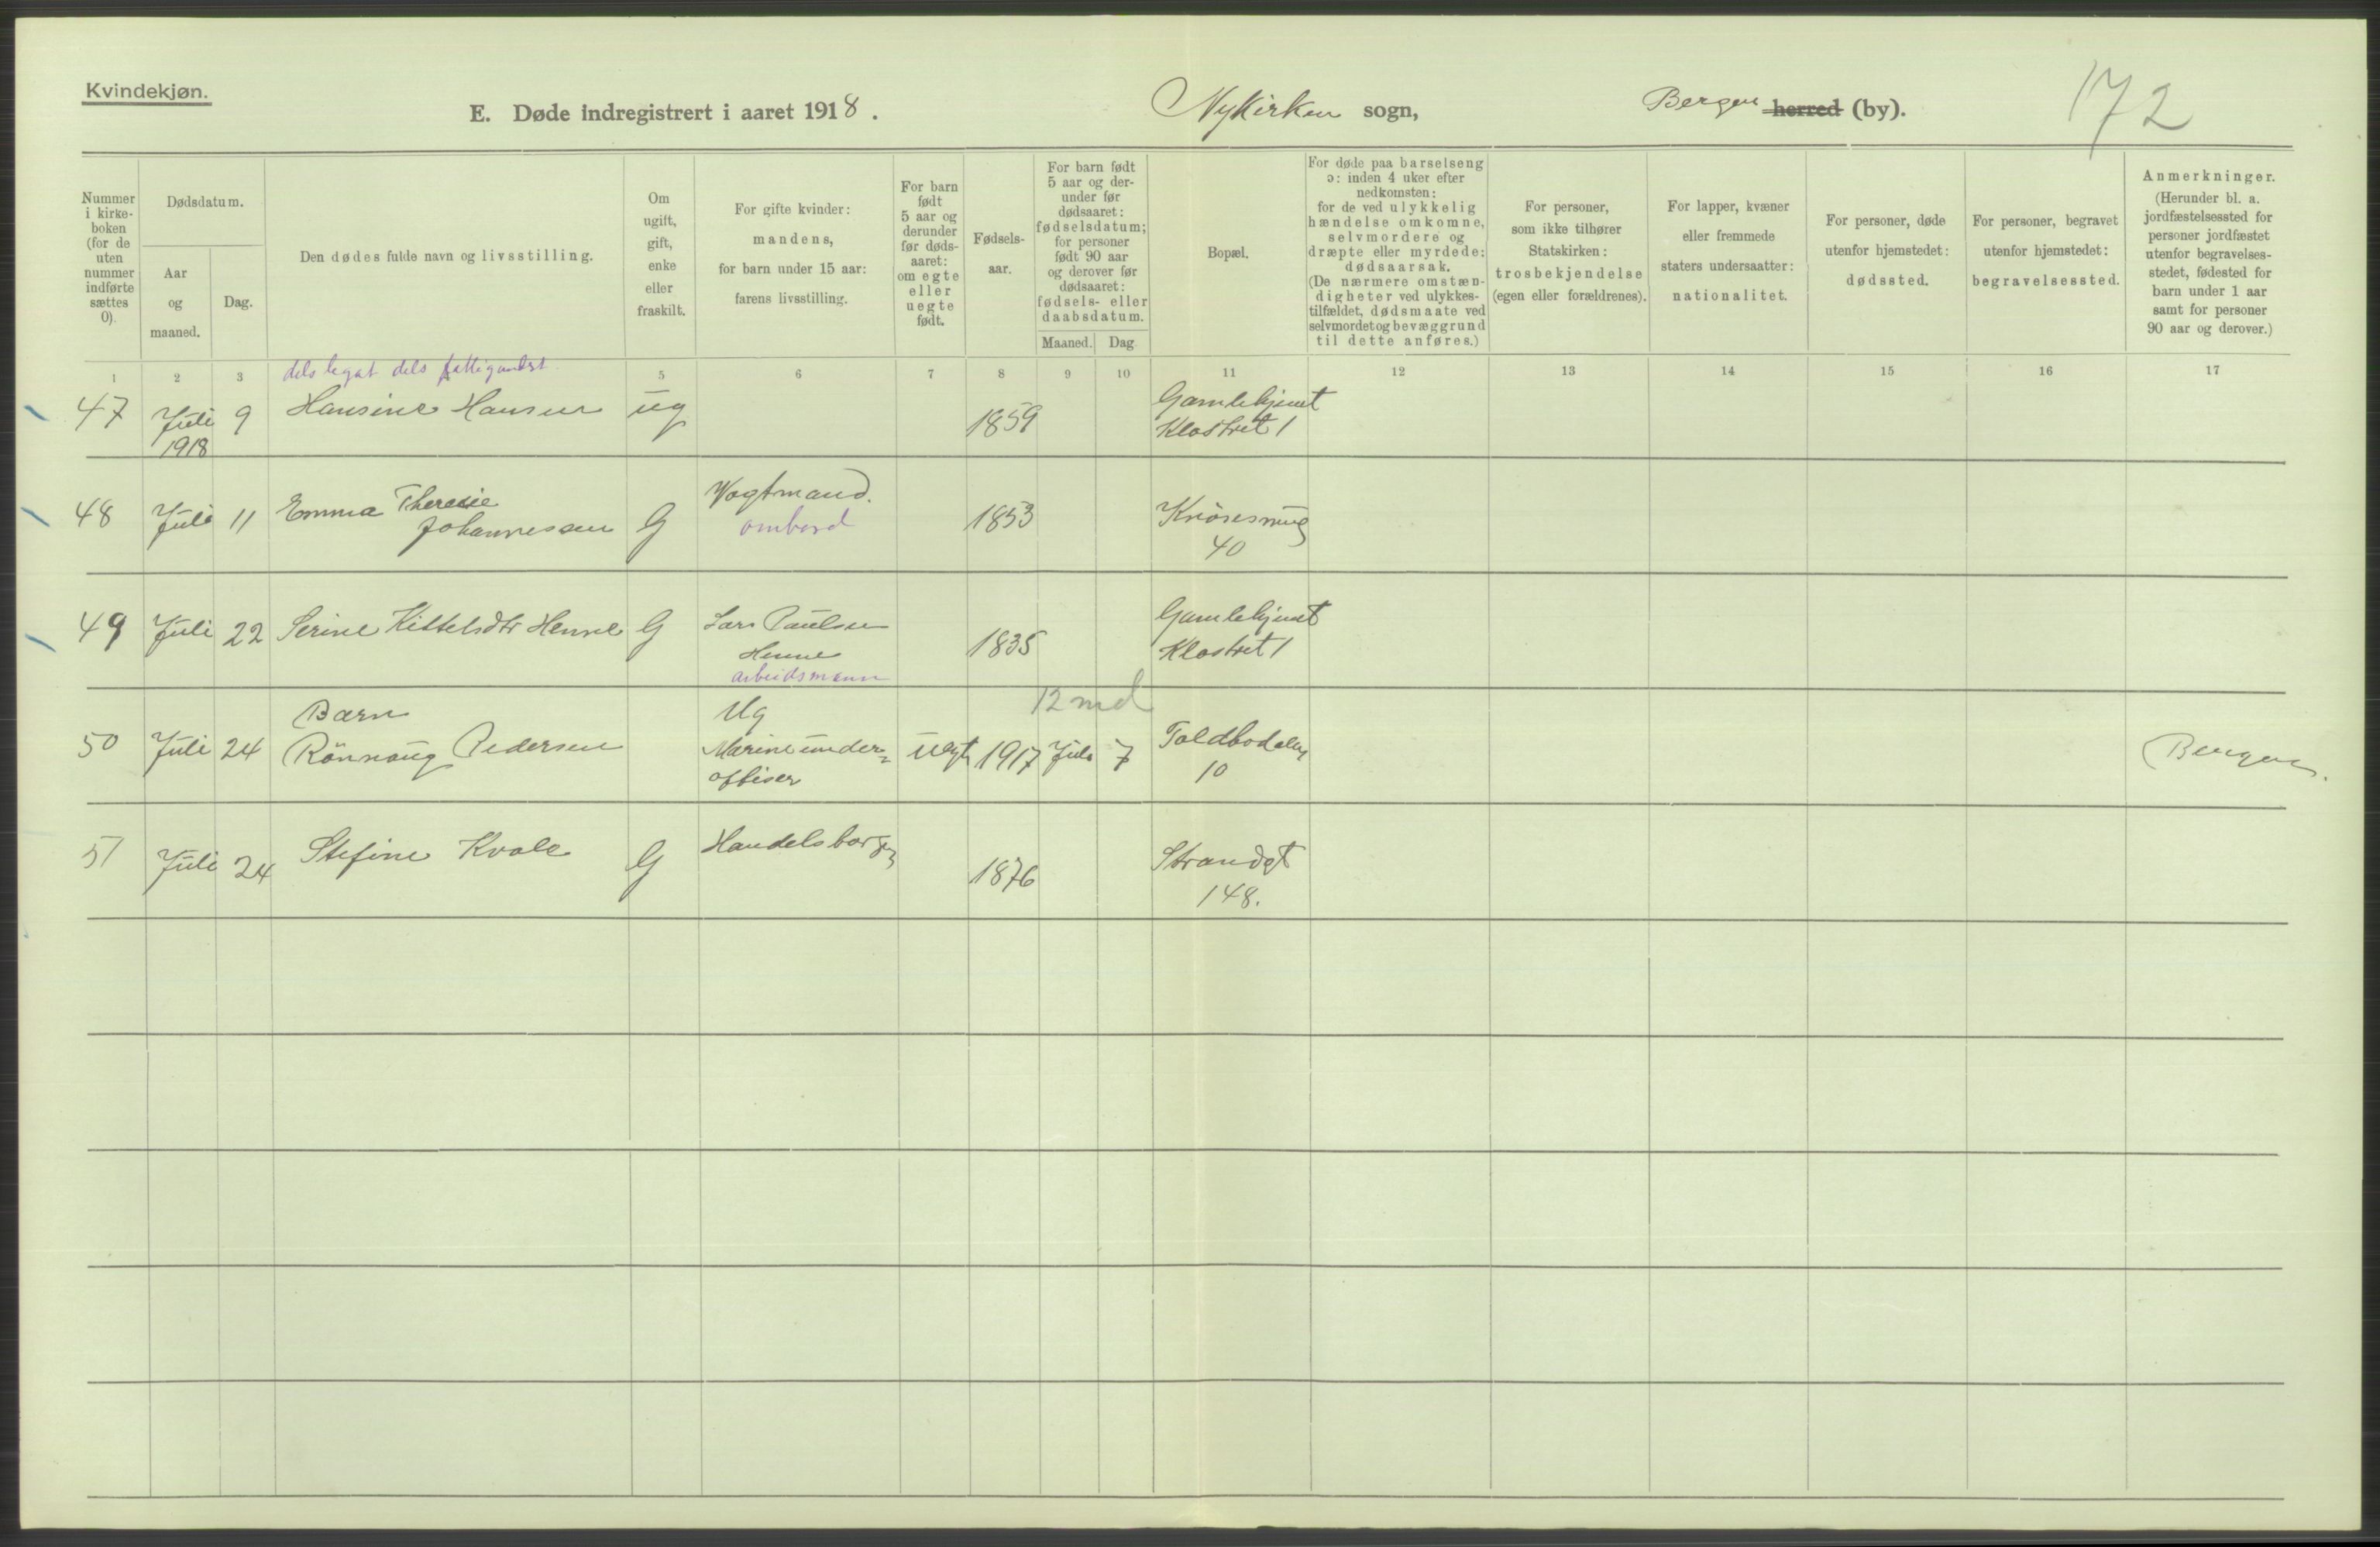 Kvindekjøn.
E. Døde indregistrert i aaret 1918.
Nykirken sogn,
Bergen herred (by).
172
Nummer i kirke-boken (for de uten nummer indførte sættes 0).
Dødsdatum.
Aar og maaned.
Dag.
Den dødes fulde navn og livsstilling.
Om ugift, gift, enke eller fraskilt.
For gifte kvinder: mandens, for barn under 15 aar: farens livsstilling.
For barn født 5 aar og derunder før døds-aaret: om egte eller uegte født.
Fødsels-aar.
For barn født 5 aar og der-under før dødsaaret: fødselsdatum; for personer født 90 aar og derover før dødsaaret: fødsels- eller daabsdatum.
Maaned.
Dag
Bopæl.
For døde paa barselseng ɔ: inden 4 uker efter nedkomsten: for de ved ulykkelig hændelse omkomne, selvmordere og dræpte eller myrdede: dødsaarsak. (De nærmere omstæn-digheter ved ulykkes-tilfældet, dødsmaate ved selvmordet og bevæggrund til dette anføres.)
For personer, som ikke tilhører Statskirken: trosbekjendelse (egen eller forældrenes).
For lapper, kvæner eller fremmede staters undersaatter: nationalitet.
For personer, døde utenfor hjemstedet: dødssted.
For personer, begravet utenfor hjemstedet: begravelsessted.
Anmerkninger. (Herunder bl. a. jordfæstelsessted for personer jordfæstet utenfor begravelses-stedet, fødested for barn under 1 aar samt for personer 90 aar og derover.)
1 2 3 5 6 7 8 9 10 11 12 13 14 15 16 17
dels legat dels fattigunderst.
47 Juli 1918 9 Hansine Hansen ug 1859 Gamlehjemt Klostret 1
48 Juli 11 Emma Theresie Johannessen G Vogtmand. ombord 1853 Knösesmug 40
49 Juli 22 Serine Kittelsdtr Henne G Lars Paulsen Henne arbeidsmann 1835 Gamlehjemt Klostret 1
12 md
50 Juli 24 Barn Rönnaug Pedersen Ug Marineunder= offiser uegt 1917 Juli 7 Toldbodalm 10 Bergen.
51 Juli 24 Stefine Kvale G Handelsborger 1876 Strandgt 148.